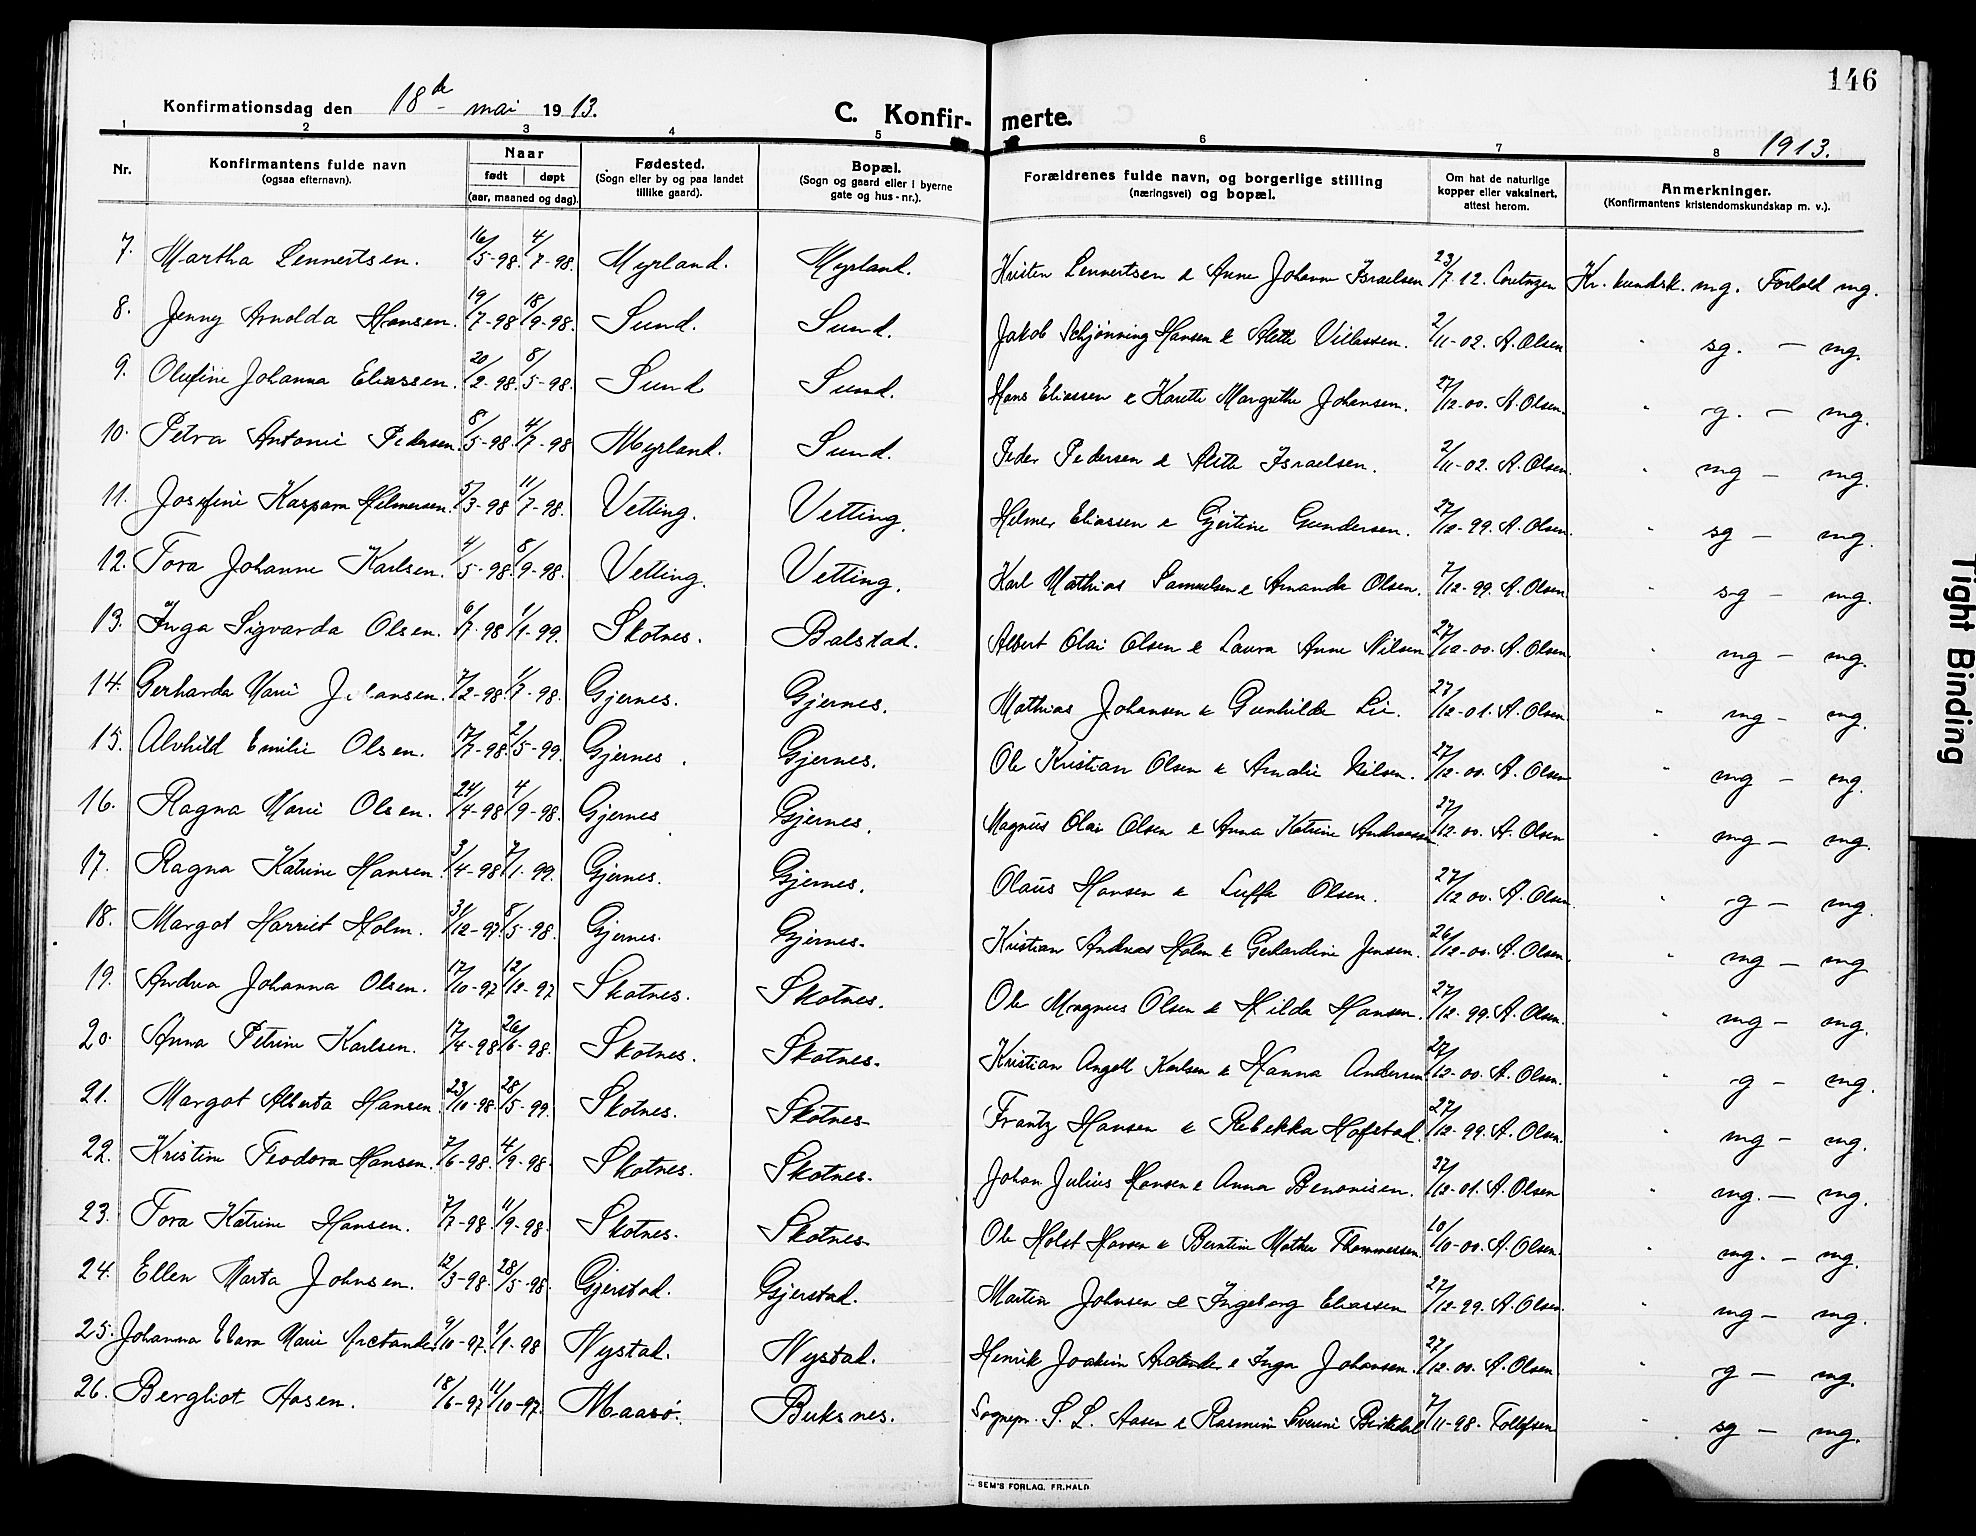 146
Konfirmationsdag den 18de mai 1913. C. Konfirmerte. 1913.
1 2 3 4 5 6 7 8
Nr. Konfirmantens fulde navn (ogsaa efternavn). Naar født døpt (aar, maaned og dag). Fødested. (Sogn eller by og paa landet tillike gaard). Bopæl. (Sogn og gaard eller i byerne gate og hus-nr.). Forældrenes fulde navn, og borgerlige stilling (næringsvei) og bopæl. Om hat de naturlige kopper eller vaksinert, attest herom. Anmerkninger. (Konfirmantens kristendomskundskap m. v.).
7. Martha Lennertsen. 16/5-98. 4/7-98. Myrland. Myrland. Kristen Lennertsen & Anne Johanne Israelsen 23/7.12. Kr. kundsk. mg. Forhold mg.
8. Jenny Arnolda Hansen. 19/7-98. 18/9-98. Sund. Sund. Jakob Schjønning Hansen & Alette Villassen. 2/11-02. A. Olsen " sg. - mg.
9. Olufine Johanna Eliassen. 20/2-98. 8/5-98. Sund Sund. Hans Eliassen & Karette Margrethe Johansen. 27/12-00. A. Olsen. " g. - mg.
10. Petra Antonie Pedersen. 8/5-98. 4/7-98 Myrland. Sund. Peder Pedersen & Alette Israelsen. 2/11-02. A. Olsen. " mg - mg.
11. Josefine Kaspara Hilmersen. 5/3-98 11/7-98. Vetting. Vetting. Helmer Eliassen & Gjertine Gundersen. 27/12-99. A. Olsen. " sg - mg.
12. Tora Johanne Karlsen. 4/5-98. 8/9-98. Vetting. Vetting. Karl Mathias Samuelsen & Amanda Olsen. 7/12-99. A. Olsen. " sg - mg.
13. Inga Sigvarda Olsen. 6/7-98 1/1-99. Skotnes. Balstad. Albert Olai Olsen & Laura Anne Nilsen 27/12-00. A. Olsen. " mg - mg.
14. Gerharda Marie Johansen. 7/2-98. 1/7-98. Gjernes. Gjernes. Mathias Johansen & Gunhilde Lie. 27/12-01. A. Olsen. " mg - mg.
15. Alvhild Emilie Olsen. 17/7-98. 2/5-99. Gjernes. Gjernes. Ole Kristian Olsen & Amalie Nilsen. 27/12-00. A. Olsen " mg - mg.
16. Ragna Marie Olsen. 24/4-98 4/9-98. Gjernes. Gjernes. Magnus Olai Olsen & Anna Katrine Andreassen 27/12.00. A. Olsen " mg - mg.
17. Ragna Katrine Hansen. 3/4-98 7/1-99. Gjernes. Gjernes. Olaus Hansen & Olsen. 27/12 00. A. Olsen. " g - mg.
18. Margot Harriet Holm. 31/12-97. 8/5-98. Gjernes. Gjernes. Kristian Andreas Holm & Gerhardine Jensen. 26/12-00. A. Olsen. " mg - mg
19. Andrea Johanna Olsen. 17/10-97 12/12-97 Skotnes. Skotnes. Ole Magnus Olsen & Hilda Hansen. 27/12-99. A. Olsen. " mg - mg.
20. Anna Petrine Karlsen. 17/4-98 26/6-98. Skotnes. Skotnes. Kristian Angell Karlsen & Hanna Andersen 27/12-00. A. Olsen. " g - mg.
21. Margot Alberta Hansen. 23/10-98. 28/5-99. Skotnes. Skotnes. Frantz Hansen & Rebekka Hofstad. 27/12-99. A. Olsen. " mg - mg.
22. Kristine Teodora Hansen. 7/6-98. 4/9-98. Skotnes. Skotnes. Johan Julius Hansen & Anna Benonisen. 27/12-01. A. Olsen " mg. - mg.
23. Tora Katrine Hansen. 7/7-98. 11/9-98. Skotnes. Skotnes. Ole Holst Hansen & Berntine Mathea Thommessen. 10/10-00. A. Olsen. " mg. - mg.
24. Ellen Marta Johnsen. 12/3-98. 28/5-98. Gjerstad. Gjerstad. Martin Johnsen & Ingeborg Eliassen 27/12-99. A. Olsen. " mg - mg.
25. Johanna Klara Marie Arctander 9/10-97. 9/1-98 Nystad. Nystad. Henrik Joakim Arctander & Inga Johansen. 27/12.00. A. Olsen. " g - mg.
26. Bergliot Aasen. 18/6-97 11/10-97. Maasø. Buksnes. Sognepr. S. L. Aasen & Rasmine Severine Birkedal 7/11-98. Tollefsen " sg - mg.
SEM'S FORLAG, FR.HALD
Tight Binding